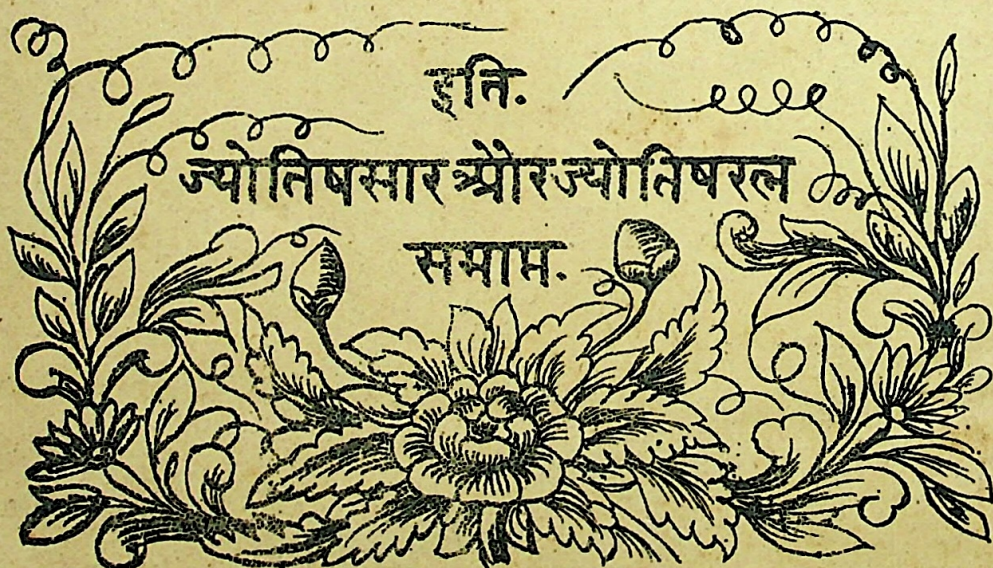 इति.
ज्योतिषसारऔरज्योतिषरत्न
समाप्त.